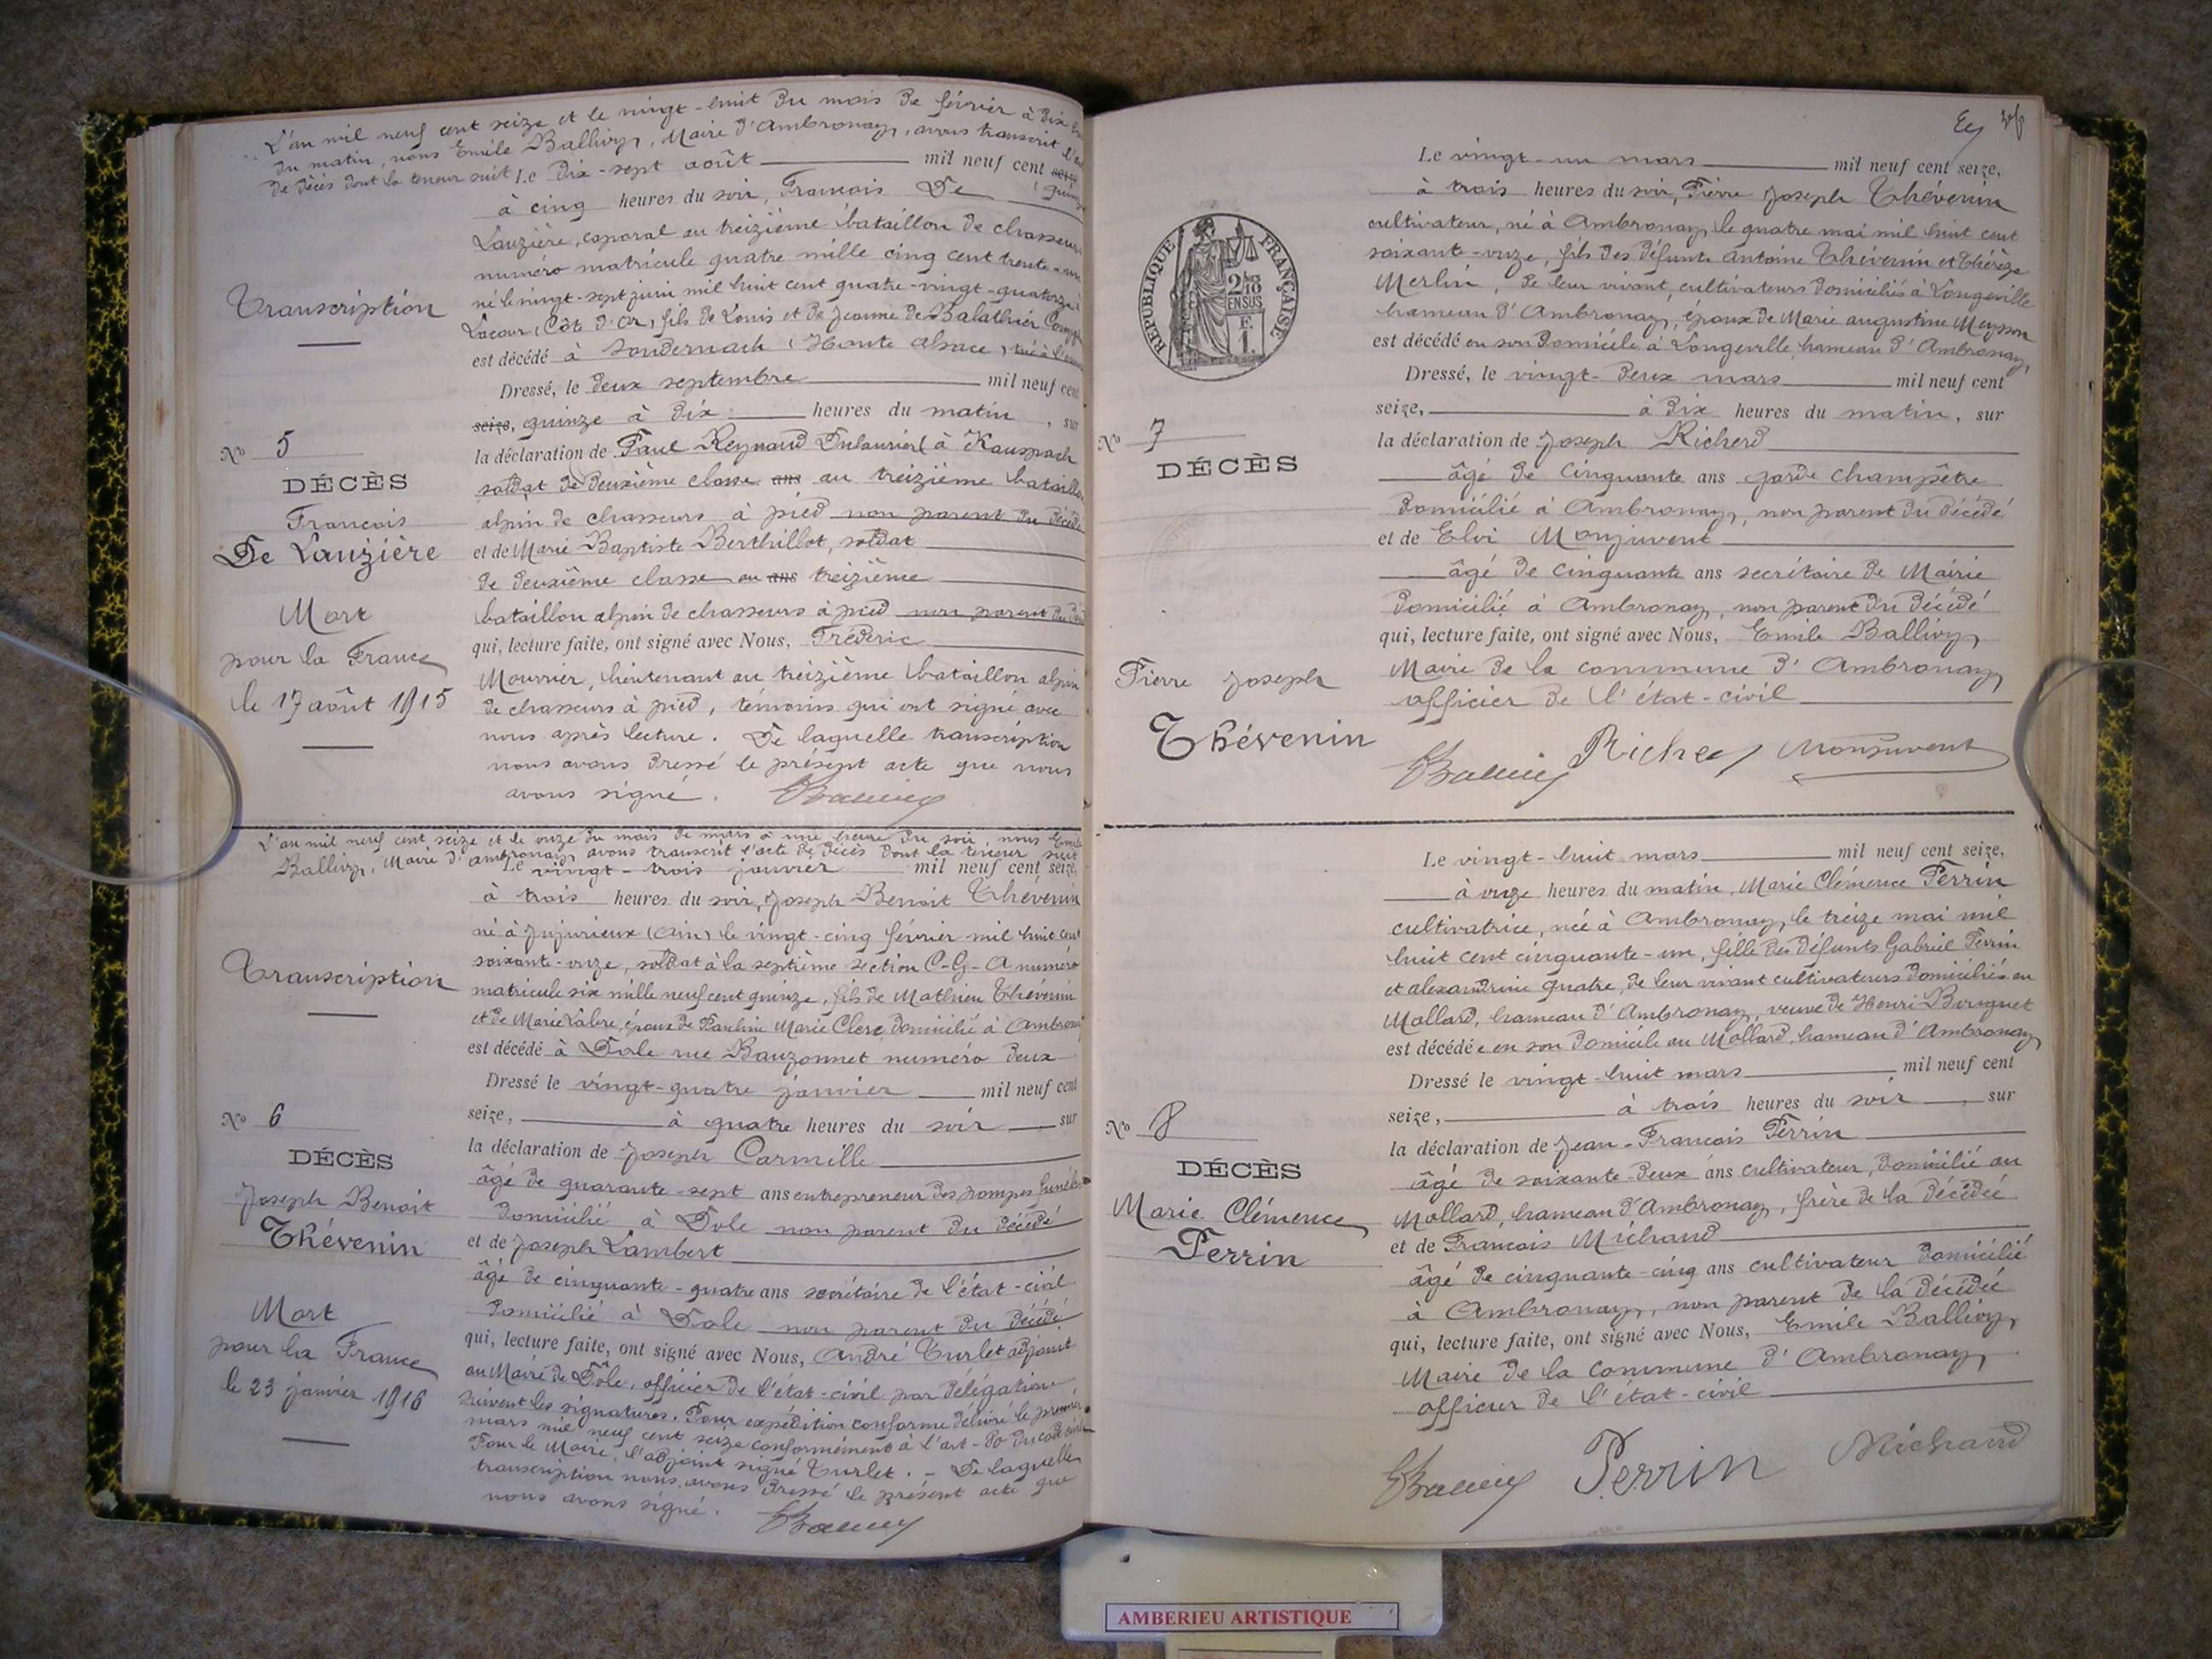 L'an mil neuf cent seize et le vingt-huit du mois de février à dix
du matin, nous Emile Ballivy, Maire d'Ambronay, avons transcrit
de décès dont la teneur suit Le dix-sept août mil neuf cent seize
à cinq heures du soir, François De
Lauzière, caporal au treizième bataillon de chasseurs
numéro matricule quatre mille cinq cent trente-un
né le vingt-sept juin mil huit cent quatre-vingt-quatorze à
Lacour (Côte d'Or) fils de Louis et de Jeanne de Balathier
est décédé à Sondernach (Haute Alsace)
Dressé, le deux septembre mil neuf cent
seize, quinze à dix heures du matin, sur
la déclaration de Paul Reynaud Dulaurier à
soldat de deuxième classe ans au treizième bataillon
alpin de chasseurs à pied non parent du décédé
et de Marie Baptiste Berthillot, soldat
de deuxième classe au ans treizième
bataillon alpin de chasseurs à pied non parent du
qui, lecture faite, ont signé avec Nous, Fréderic
Mourrier, lieutenant au treizième bataillon alpin
de chasseurs à pied, témoins qui ont signé avec
nous après lecture. De laquelle transcription
nous avons dressé le présent acte que nous
avons signé.
Transcription
N° 5
DÉCÈS
François
De Lauzière
Mort
pour la France
le 17 août 1915
L'an mil neuf cent seize et le onze du mois de mars à une heure du soir, nous Emile
Ballivy, Maire d'Ambronay avons transcrit l'acte de décès dont la teneur suit
Le vingt-trois janvier mil neuf cent seize,
à trois heures du soir, Joseph Benoit Thévenin
né à Jujurieux (Ain) le vingt-cinq février mil huit cent
soixante-onze, soldat à la septième section C-G-A numéro
matricule six mille neuf cent quinze, fils de Mathieu Thévenin
et de Marie Labre, époux de Pauline Marie Clerc domicilié à Ambronay
est décédé à Dole rue Bauzonnet numéro deux
Dressé le vingt-quatre janvier mil neuf cent
seize, à quatre heures du soir sur
la déclaration de Joseph Carmille
âgé de quarante-sept ans entrepreneur des pompes funèbres
domicilié à Dole non parent du décédé
et de Joseph Lambert
âgé de cinquante-quatre ans secrétaire de l'état-civil
domicilié à Dole non parent du décédé
qui, lecture faite, ont signé avec Nous, André Turlet adjoint
au Maire de Dôle, officier de l'état-civil par délégation
suivent les signatures. Pour expédition conforme délivré le premier
mars mil neuf cent seize conformément à l'art-80 du code civil
Pour le Maire, l'adjoint signé Turlet. - De laquelle
transcription nous avons dressé le présent acte que
nous avons signé.
Transcription
N° 6
DÉCÈS
Joseph Benoit
Thévenin
Mort
pour la France
le 23 janvier 1916
RÉPUBLIQUE FRANÇAISE
Le vingt-un mars mil neuf cent seize,
à trois heures du soir, Pierre Joseph Thévenin
cultivateur, né à Ambronay, le quatre mai mil huit cent
soixante-onze, fils des défunts Antoine Thévenin et Thérèze
Merlin, de leur vivant, cultivateurs domiciliés à Longeville
hameau d'Ambronay, époux de Marie Augustine Meysson
est décédé en son domicile à Longeville, hameau d'Ambronay,
Dressé, le vingt-deux mars mil neuf cent
seize, à dix heures du matin, sur
la déclaration de Joseph Richerd
âgé de cinquante ans garde champêtre
domicilié à Ambronay, non parent du décédé
et de Eloi Monjuvent
âgé de cinquante ans secrétaire de Mairie
domicilié à Ambronay, non parent du décédé
qui, lecture faite, ont signé avec Nous, Emile Ballivy,
Maire de la commune d'Ambronay,
officier de l'état-civil
Monjuvent
N° 7
DÉCÈS
Pierre Joseph
Thévenin
Le vingt-huit mars mil neuf cent seize,
à onze heures du matin, Marie Clémence Perrin
cultivatrice, née à Ambronay, le treize mai mil
huit cent cinquante-un, fille des défunts Gabriel Perrin
et Alexandrine Quatre, de leur vivant cultivateurs domiciliés au
Mollard, hameau d'Ambronay, veuve de Henri
est décédée en son domicile au Mollard, hameau d'Ambronay,
Dressé le vingt-huit mars mil neuf cent
seize, à trois heures du soir, sur
la déclaration de Jean-François Perrin
âgé de soixante-deux ans cultivateur, domicilié au
Mollard, hameau d'Ambronay, frère de la décédée
et de François Michaud
âgé de cinquante-cinq ans cultivateur domicilié
à Ambronay, non parent de la décédée
qui, lecture faite, ont signé avec Nous, Emile Ballivy,
Maire de la commune d'Ambronay,
officier de l'état-civil
Perrin Michaud
N° 8
DÉCÈS
Marie Clémence
Perrin
AMBERIEU ARTISTIQUE